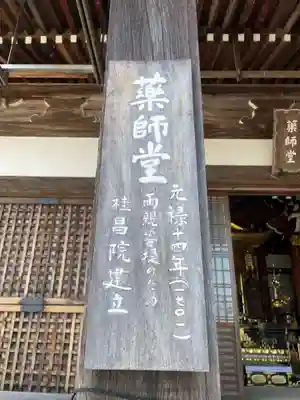 薬師堂
元禄十四年(一七〇一)
両親菩提のため
桂昌院建立
薬師堂